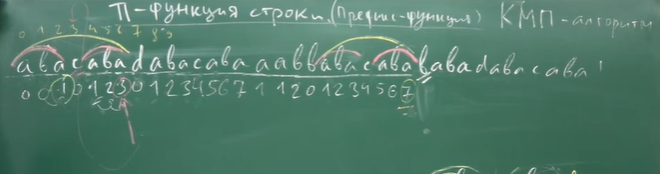 П-функция строки. (Префикс-функция) КМП-алгоритм
0 1 2 3 4 5 6 7 8 9
abacabadabacaba aabbabacaba babadabacaba
0 0 1 0 1 2 3 0 1 2 3 4 5 6 7 1 1 2 0 1 2 3 4 5 6 7